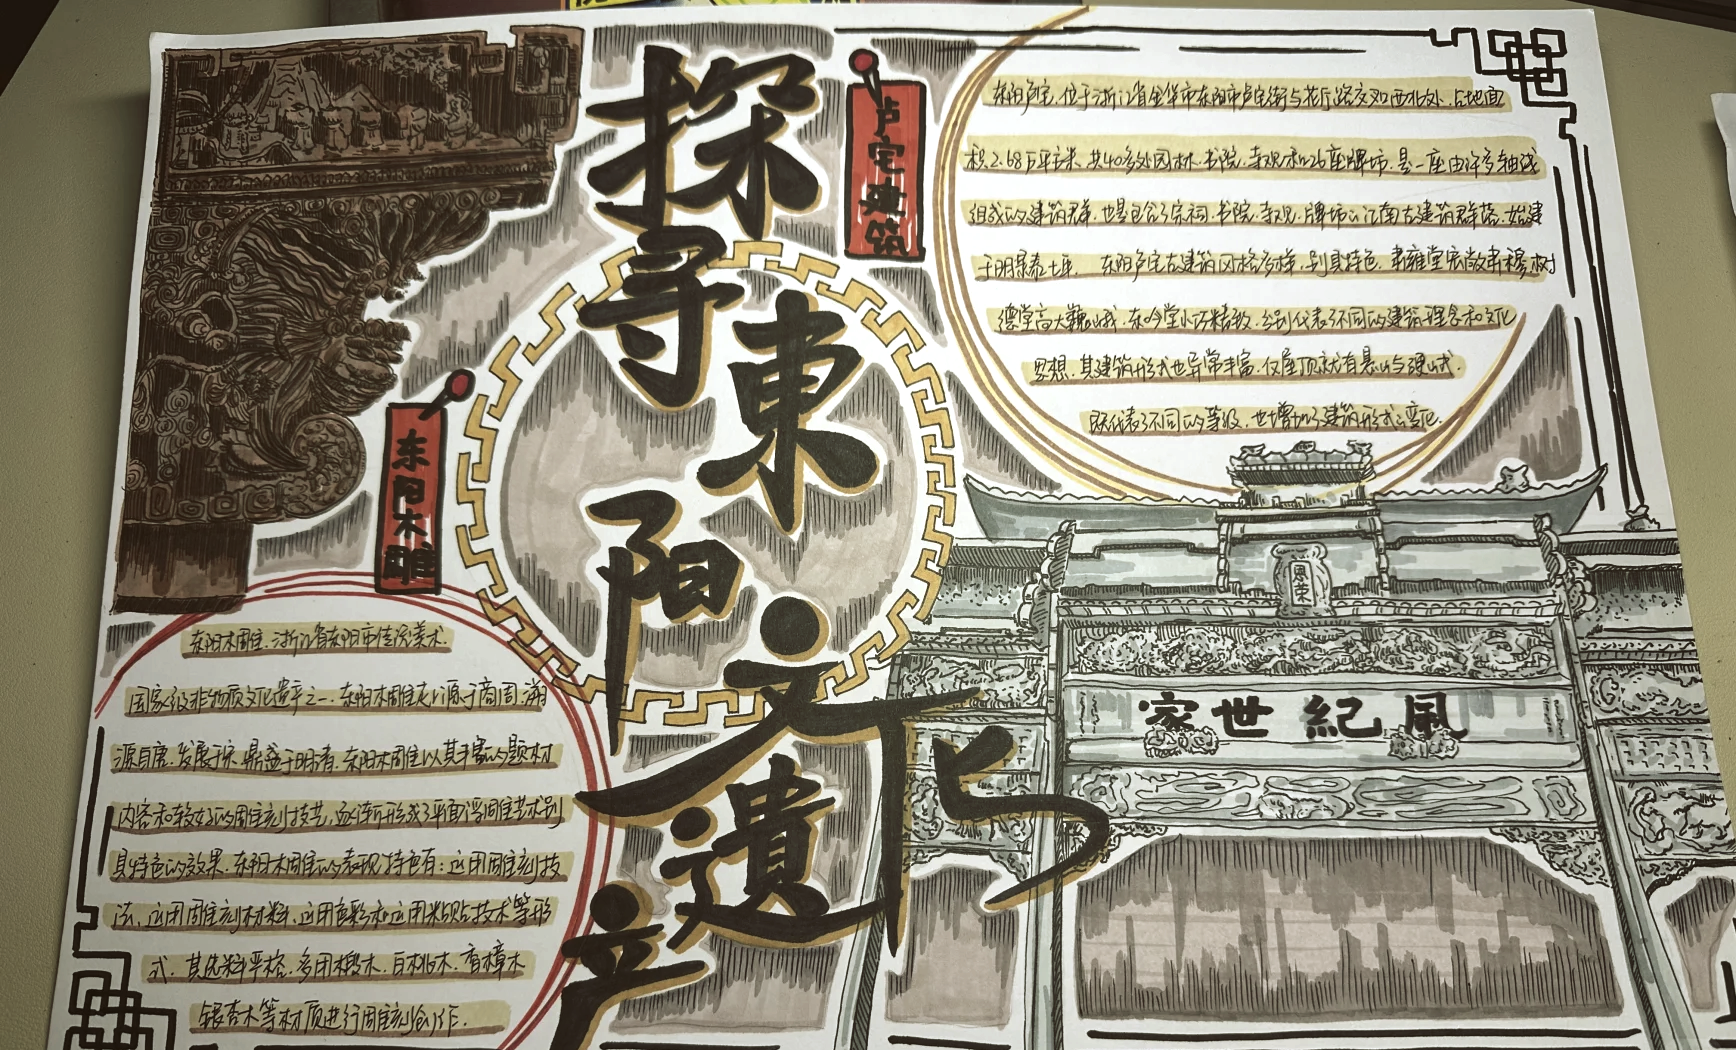 探寻
東阳文化遺产
卢宅建筑
东阳卢宅,位于浙江省金华市东阳市卢宅街与花厅路交叉西北处,占地面
积2.68万平方米,共40多处园林、书院、寺观和26座牌坊,是一座由许多轴线
组成的建筑群,也是包含了宗祠、书院、寺观、牌坊的江南古建筑群落,始建
于明景泰七年。东阳卢宅古建筑风格多样,别具特色,肃雍堂宏敞肃穆,树
德堂高大巍峨,东吟堂小巧精致,分别代表不同的建筑理念和文化
思想,其建筑形式也异常丰富,仅屋顶就有悬山与硬山式,
既代表了不同的等级,也增加了建筑形式的变化。
恩荣
風紀世家
东阳木雕
东阳木雕,浙江省东阳市传统美术,
国家级非物质文化遗产之一,东阳木雕起源于商周,溯
源自唐,发展于宋,鼎盛于明清,东阳木雕以其丰富的题材
内容和较好的雕刻技艺,逐渐形成了平面浮雕艺术别
具特色的效果,东阳木雕的表现特色有:运用雕刻技
法、运用雕刻材料、运用色彩和运用粘贴技术等形
式,其选料严格,多用椴木、白桃木、香樟木
银杏木等材质进行雕刻创作。